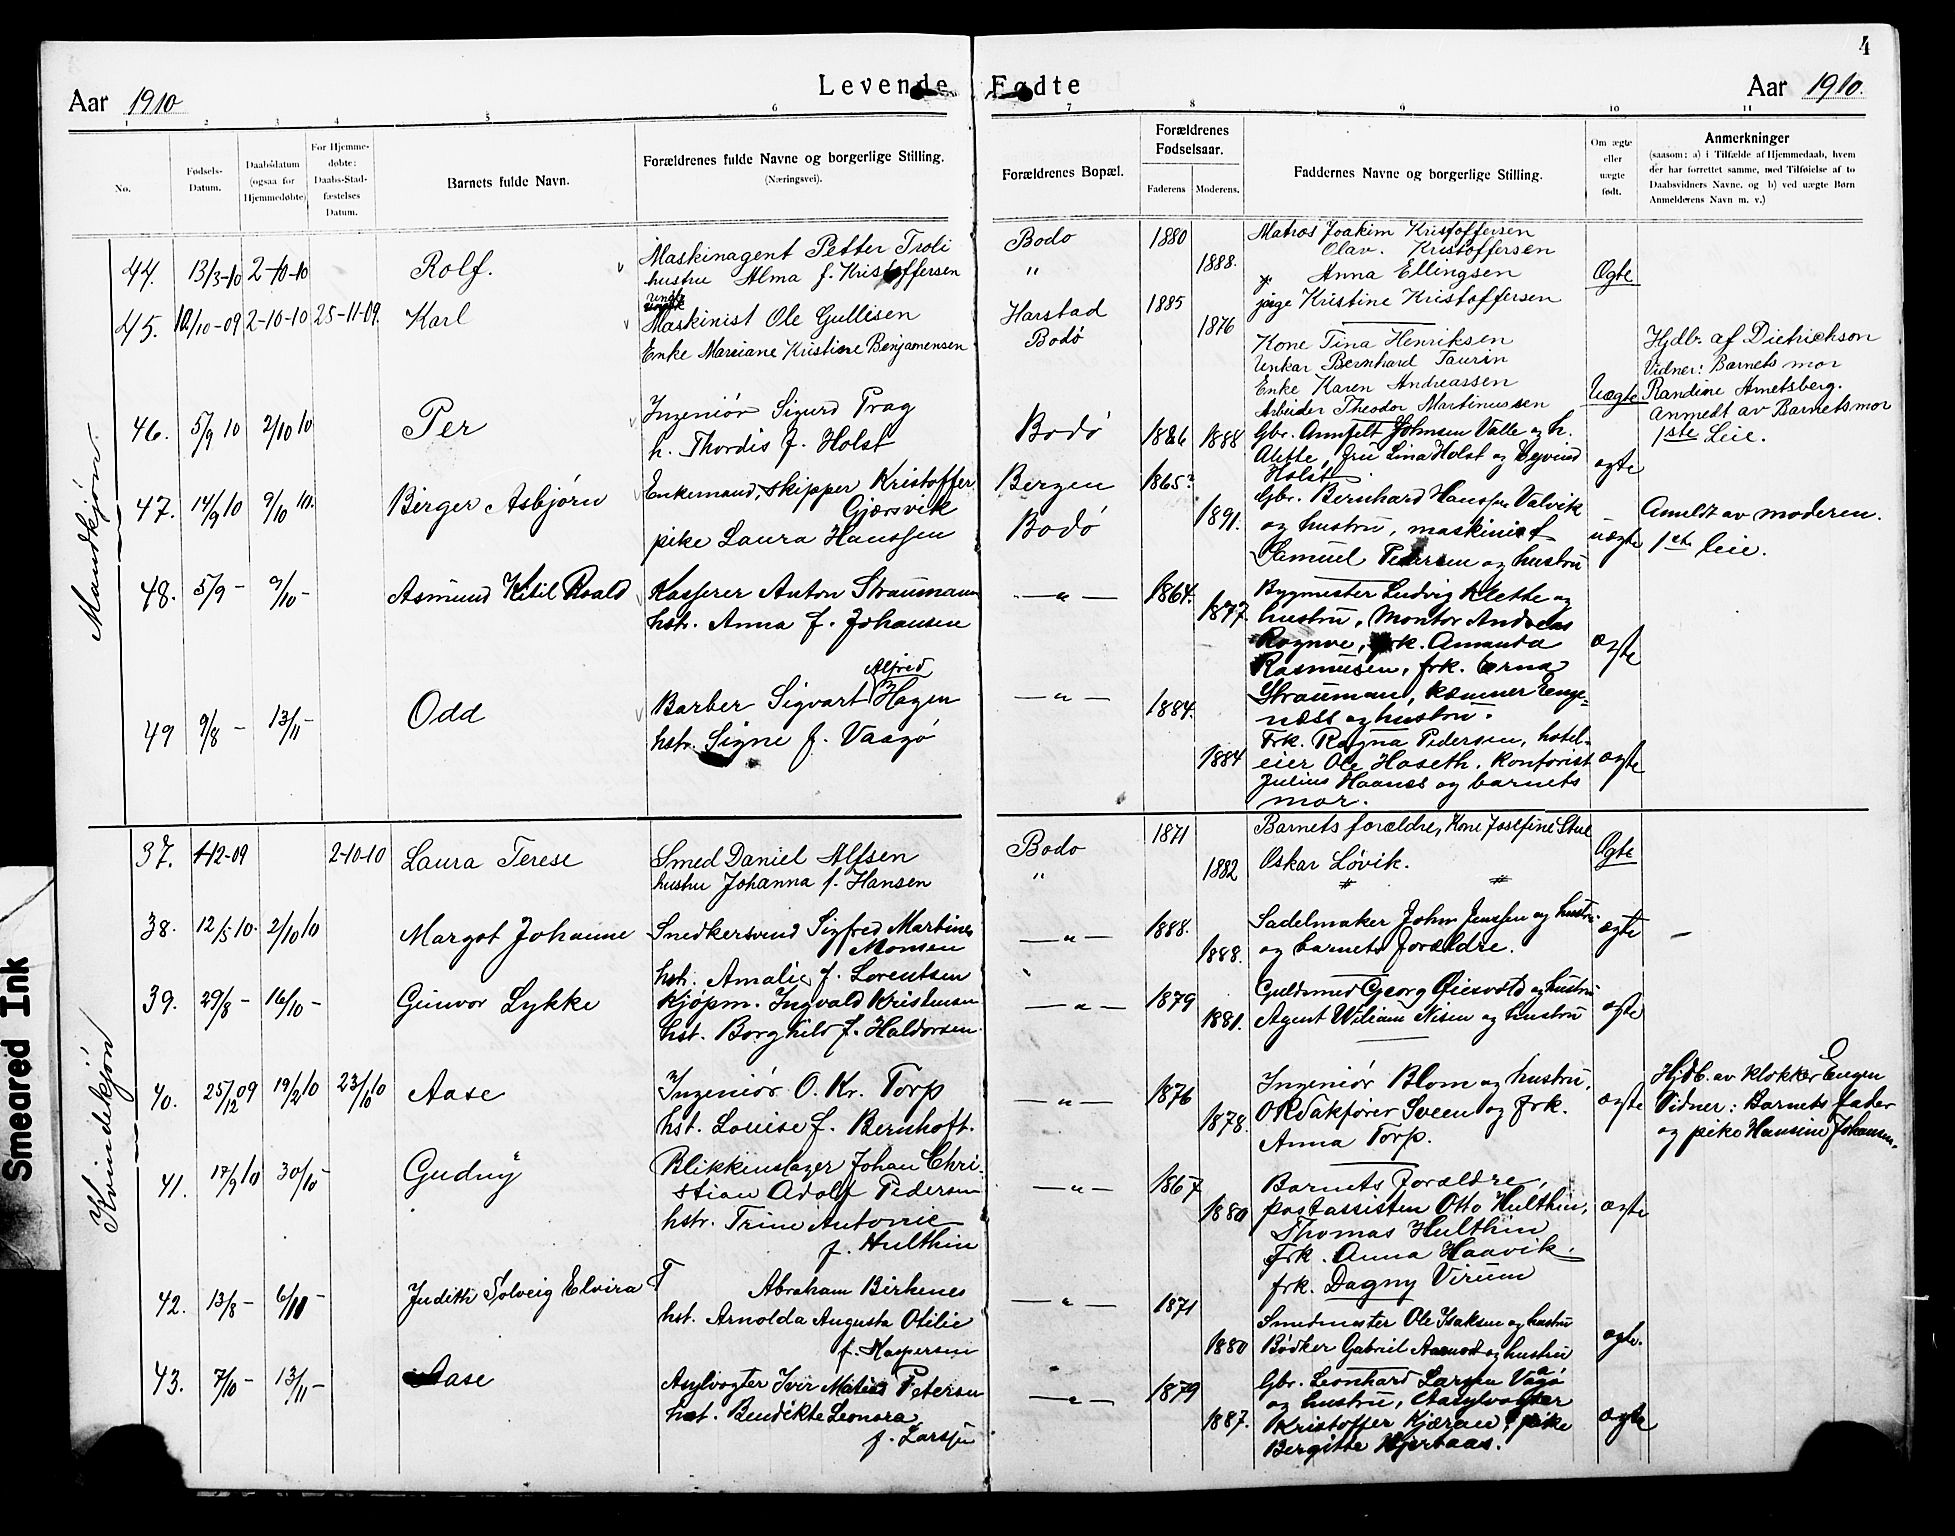 4
Levende Fødte
Aar 1910
Aar 1910.
1 2 3 4 5 6 7 8 9 10 11
No.
Fødsels-
Datum.
Daabsdatum
(ogsaa for
Hjemmedøbte)
For Hjemme-
døbte:
Daabs-Stad-
fæstelses
Datum.
Barnets fulde Navn.
Forældrenes fulde Navne og borgerlige Stilling.
(Næringsvei).
Forældrenes Bopæl.
Forældrenes
Fødselsaar.
Faderens
Moderens.
Faddernes Navne og borgerlige Stilling.
Om ægte
eller
uægte
født.
Anmerkninger
(saasom: a) i Tilfælde af Hjemmedaab, hvem
der har forrettet samme, med Tilføielse af to
Daabsvidners Navne, og b) ved uægte Børn
Anmelderens Navn m. v.)
Mandkjøn.
44. 13/3-10 2-10-10 Rolf.
Maskinagent Petter Troli
hustru Alma f. Kristoffersen
Bodo
"
1880
1888.
Matros Joakim Kristoffersen
Olav. Kristoffersen
Anna Ellingsen
pige Kristine Kristoffersen
Ægte
45. 12/10-09 2-10-10 25-11-09. Karl
Maskinist Ole Gullisen
Enke Marciane Kristine Benjamensen
Harstad
Bodø
1885
1876
Kone Tina Henriksen
Unkar Bernhard Taurin
Enke Karen Andreassen
Arbeider Theodor Martinussen
Uægte
Hjdb. af Dietrichson
Vidner: Barnets mor
Randine Arnetsberg.
Anmedt av Barnets mor
1ste Leie.
46. 5/9 10 2/10 10 Per
Ingeniør Sigurd Prag
h. Thordis f. Holst
Bodø
1888
Gbr. Annfelt Johnsen Valle og h.
Alette, fru Lina Holst og Eyvind
Holst
ægte
47. 14/9 10 9/10 10. Birger Asbjørn
Enkemand, skipper Kristoffer
Gjærsvik
pike Laura Hanssen
Bergen
Bodø
1865?
1891.
Gbr. Bernhard Hanssen Valvik
og hustru, maskinist
Samuel Pedersen og hustru
uægte
Anmeldt av moderen.
1ste leie.
48. 5/9 - 9/10 - Asmund Ketil Roald
Kasserer Anton Straumann
hstr. Anna f. Johansen
— " —
1864.
1877.
Bygmester Ludvig Klette og
hustru, Montør Andreas
Rognve, frk. Amanda
Rasmusen, frk. Erna
Strauman, kæmner Enge-
næss og hustru.
ægte
49 9/8 - 13/11 - Odd
Alfred
Barber Sigvart Hagen
hstr. Signe f. Vaagø
— " —
1884.
1884
Frk. Ragna Pedersen, hotel-
eier Ole Haseth, Kontorist
Julius Haanes og barnets
mor.
ægte
Kvindekjøn
37. 4-12-09 2-10-10 Laura Terese
Smed Daniel Alfsen
hustru Johanna f. Hansen
Bodo
"
1871
1882
Barnets forældre, Kone Josefine Stue
Oskar Løvik.
Ægte
38. 12/5 10. 2/10 10 Margot Johanne
Snedkersvend Sigfred Martines
Monsen
hstr. Amalie f. Lorentsen
— " —
1888.
1888.
Sadelmaker John Jenssen og hustru
og barnets forældre.
ægte
—
39. 29/8 - 16/10 - Gunvor Lykke
Kjøpm. Ingvald Kristensen
hst. Borghild f. Haldorsen.
— " —
1879
1881.
Guldsmed Georg og hustru
Agent Wiliam Nisen og hustru
ægte
40. 25/12 09 19/2 10 23/10 10 Aase
Ingeniør O. Kr. Torp
hst. Louise f. Bernhoft.
— " —
1876
1878.
Ingeniør Blom og hustru,
O.R.sakfører Sveen og frk.
Anna Torp.
ægte
Hjdb. av klokker Engen
Vidner: Barnets fader
og pike Hansine Johansen.
41. 17/9 10 30/10 - Gudny
Blikkenslager Johan Chri-
stian Adolf Pedersen
hstr. Trine Antonie
f. Hulthin
— " —
1867
1880
Barnets forældre,
postassisten Otto Hulthin,
Thomas Hulthin
Frk. Anna Haavik.
frk. Dagny Virum
ægte
42. 13/8 - 6/11 - Judith Solveig Elvira
T Abraham Birkenes
hst. Arnolda Augusta Otilie
f. Kaspersen
— " —
1871
1880
Smedmester Ole Isaksen og hustru
Bødker Gabriel Aasmod og hustru
ægte.
43. 7/10 - 13/11 - Aase
Asylvogter Iver Matias Petersen
hst. Bendikte Leonora
f. Larssen
— " —
1879
1887.
Gbr. Leonhard Larssen Vaagø
og hustru, Asylvogter
Kristoffer Kjæran, pike
Bergitte Hjertaas.
ægte
Smeared Ink